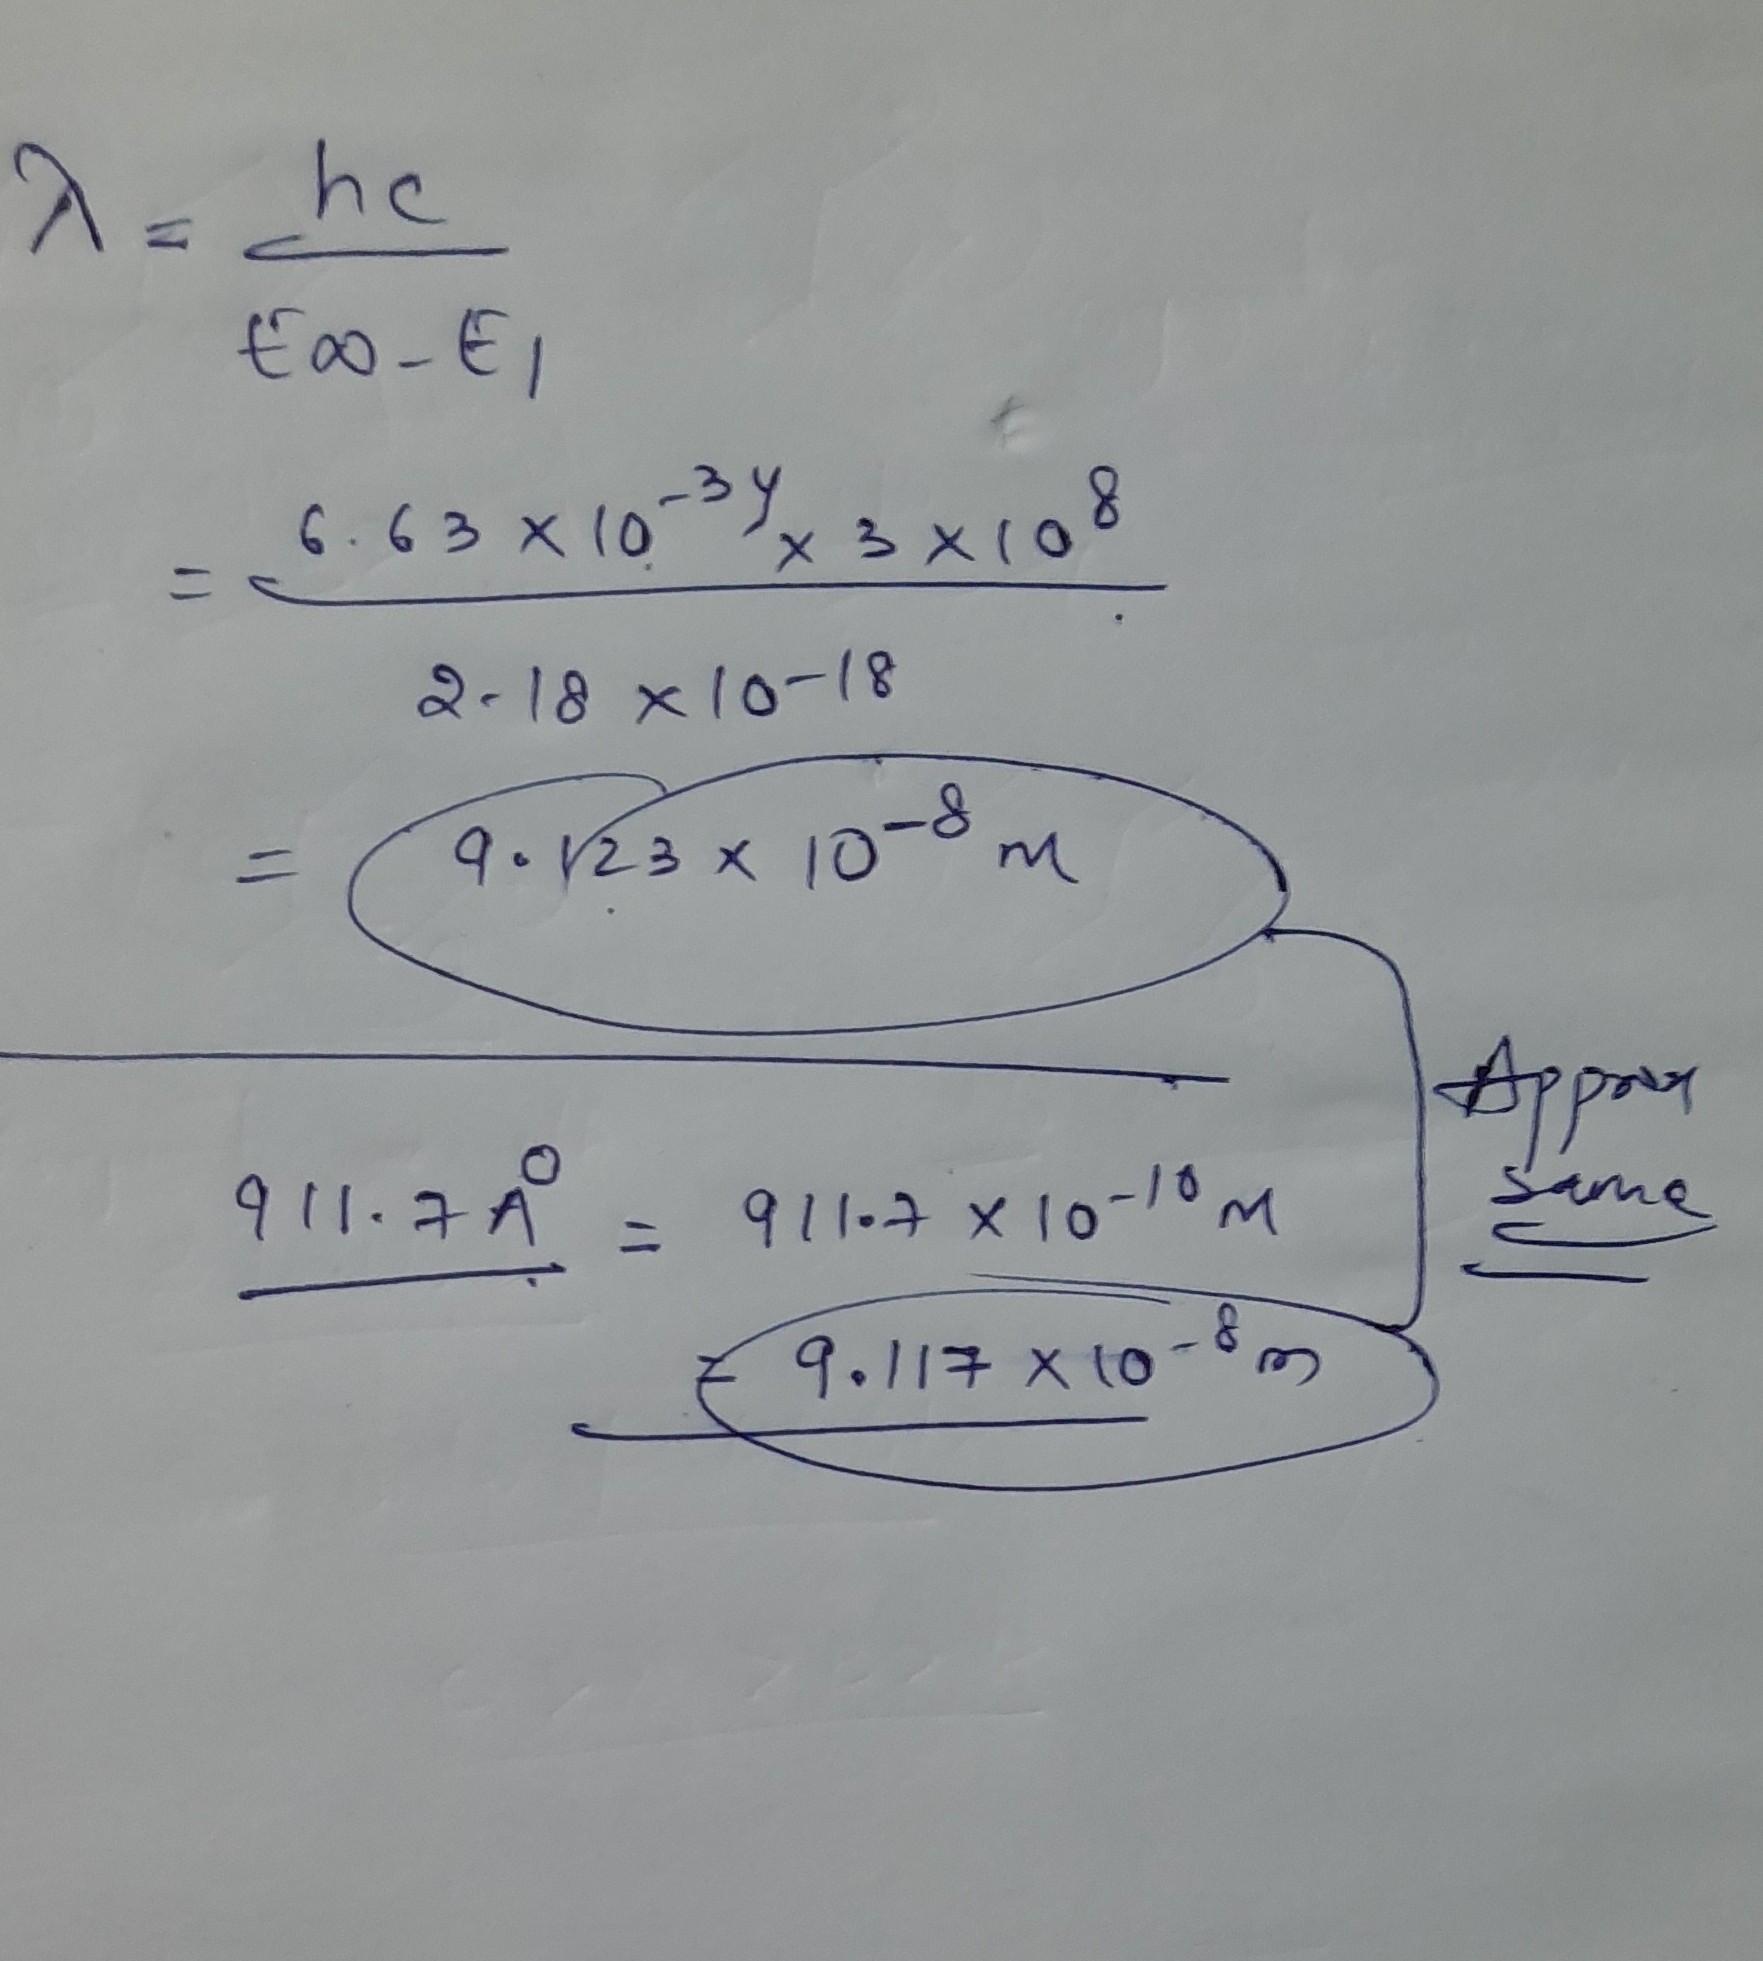 λ = hc
E∞ - E1
= 6.63 x 10^-34 x 3 x 10^8
2.18 x 10-18
= 9.123 x 10^-8 m
911.7 A° = 911.7 x 10^-10 m
= 9.117 x 10^-8 m
Approx
same